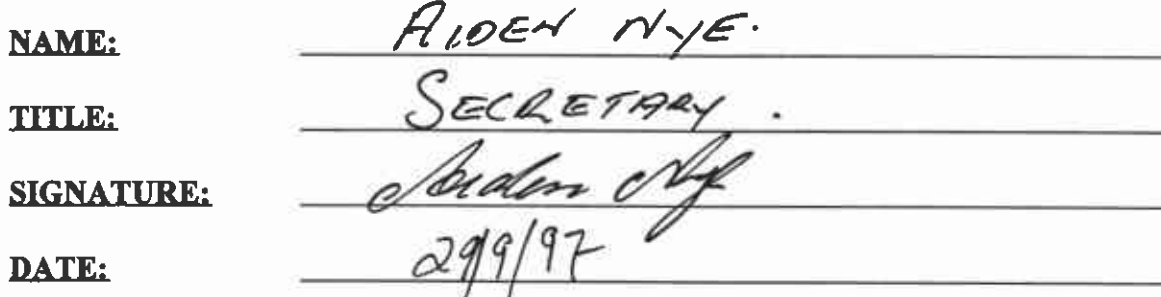 NAME: AIDEN NYE.
TITLE: SECRETARY.
SIGNATURE: Aiden Nye
DATE: 29/9/97